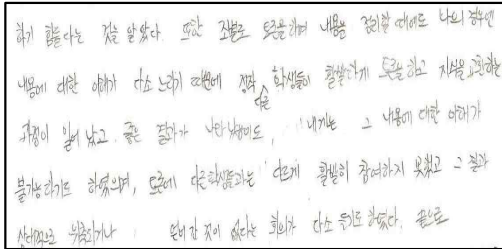 하기 힘들다는 것을 알았다. 또한 조별로 토론을 하며 내용을 정리할 때에도 나의 경우엔
내용에 대한 이해가 다소 느리기 때문에 정작 다른 학생들이 활발하게 토론을 하고 지식을 교환하는
과정이 일어 났고. 좋은 결과가 나타났음에도, 내게는 그 내용에 대한 이해가
불가능하기도 하였으며, 토론에 다른학생들과는 다르게 활발히 참여하지 못했고 그 결과
상대적으로 위축되거나 것이 없다는 회의가 다소 들기도 하였다. 끝으로